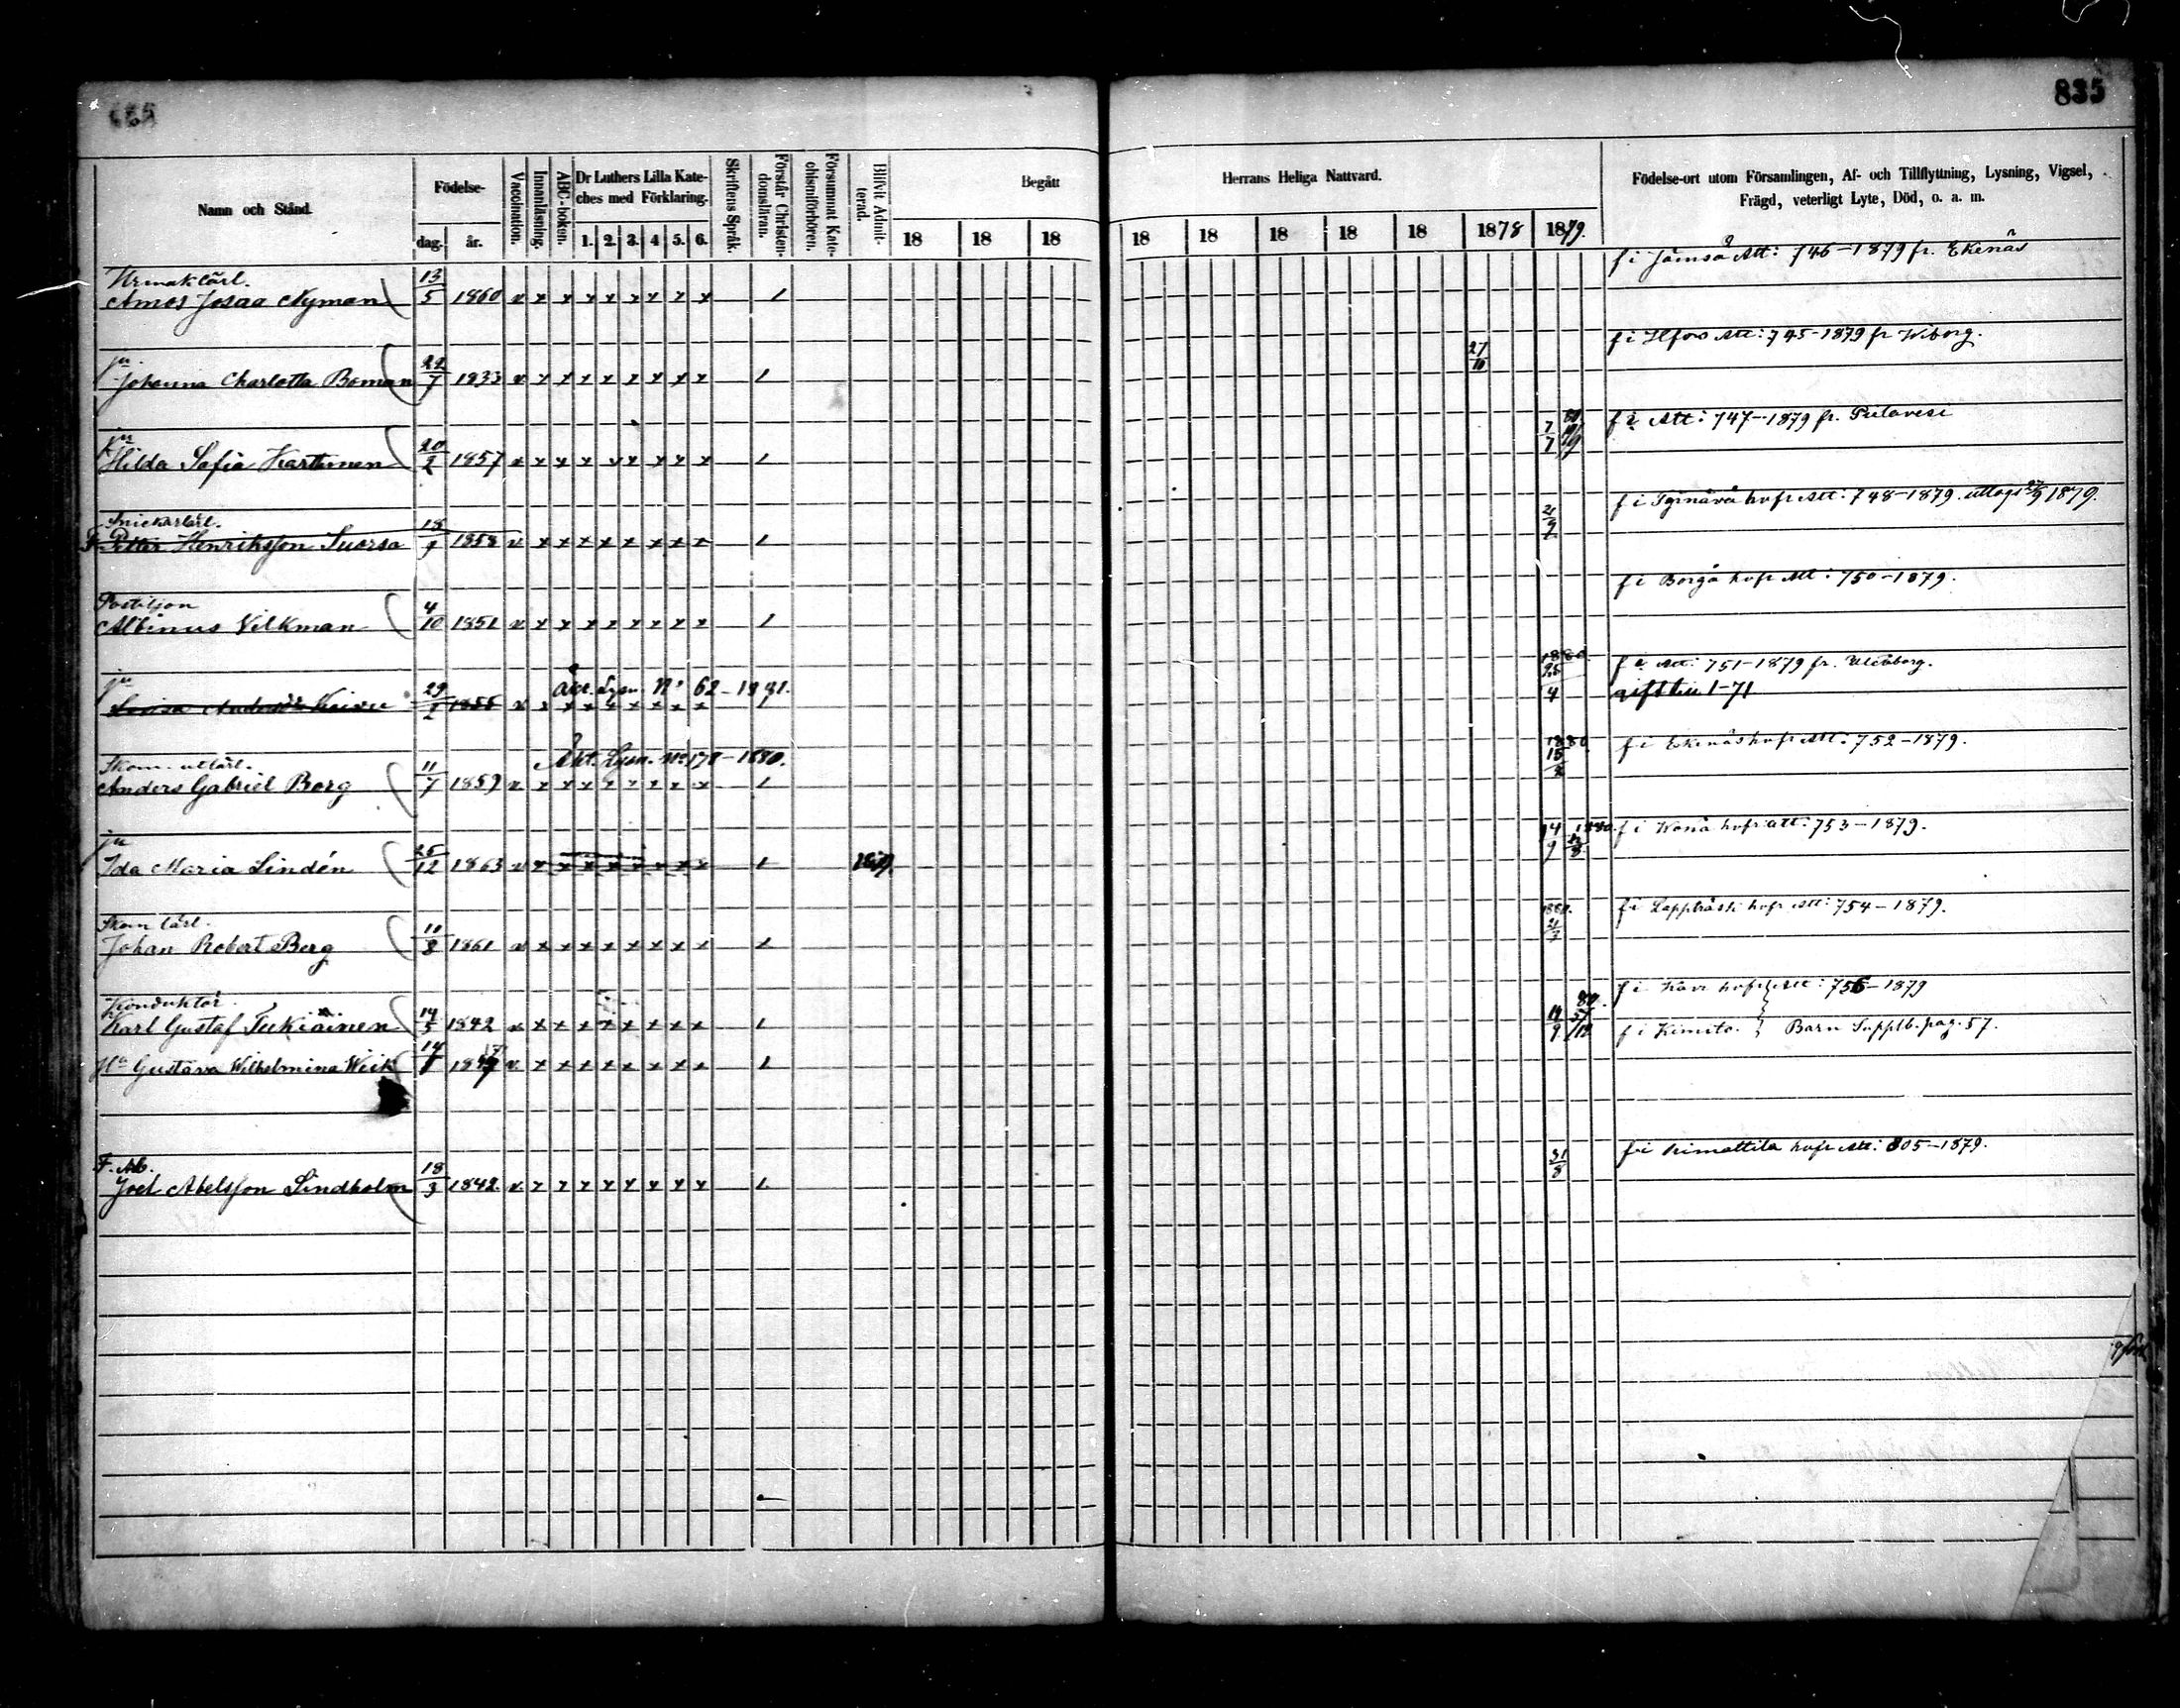 835
Namn och Stånd.
Födelse-
dag.
år.
Vaccination.
Innanläsning.
ABC-boken.
Dr Luthers Lilla Kate-
ches med Förklaring.
1. 2. 3. 4 5. 6.
Skriftens Språk.
Förstår Christen-
domsläran.
Försummat Kate-
chismiförhören.
Blifvit Admit-
terad.
Begått
Herrans Heliga Nattvard.
18 18 18 18 18 18 18 18 1878 1879.
Födelse-ort utom Församlingen, Af- och Tillflyttning, Lysning, Vigsel,
Frägd, veterligt Lyte, Död, o. a. m.
Urmak lärl.
Amos Josaa Nyman 13/5 1860 v x x x x x x x x /
f i Jämsä Att: 746-1879 fr. Ekenäs
ju.
Johanna Charlotta Boman 22/7 1833 v x x x x x x x x / 27/10
f i Hfors Att: 745-1879 fr Wiborg.
ju
Hilda Sofia Karthunen 20/2 1857 v x x x x x x x x / 7/7
f ? Att: 747-1879 fr. Pielavesi
Snickarlärl.
F. Petter Henriksson Suorsa 18/9 1858 v x x x x x x x x /
hofr Att: 748-1879. uttogs 1879.
Postiljon
Albinus Vilkman 4/10 1851 v x x x x x x x x /
f i Borgå hofr Att: 750-1879.
ju
29/2 1855 v x x x x x x x x
Akt. Lysn. No 62-1881.
1880. 25/4
f ? Att: 751-1879 fr. Uleåborg.
gift till 1-71
Skom. utlärl.
Anders Gabriel Borg 11/7 1859 v x x x x x x x x /
Akt. Lysn. No 178-1880.
1880. 15
f i Ekenäs hofr Att: 752-1879.
ju
Ida Maria Lindén 25/12 1863 v x x x x x x x x / 1879.
14/9 1880.
hofr att: 753-1879.
Skom lärl.
Johan Robert Berg 11/8 1861 v x x x x x x x x /
f i Lappträsk hofr Att: 754-1879.
Konduktör
Karl Gustaf Tukiainen 14/5 1842 v x x x x x x x x / 14/9 80.
hofr Att: 756-1879
Ha Gustava Wilhelmina Weik 14 v x x x x x x x x /
f i Kimito. Barn Supplb. pag. 57.
F. Ab.
Joel Abelsson Lindholm 18/3 1842. v x x x x x x x x / 31/8
f i Arimattila hofr Att: 805-1879.